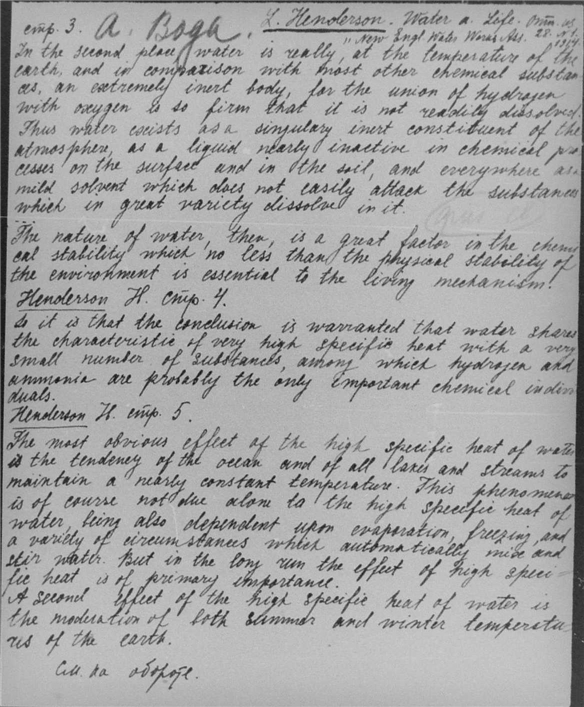 стр. 3. А. Вода. L. Henderson. Water a. Life.
"New Engl Water Works Ass. 28. N 1, 1914
In the second place water is really, at the temperature of the
earth, and in comparison with most other chemical substan
ces, an extremely inert body, for the union of hydrogen
with oxygen is so firm that it is not readily dissolved.
Thus water exists as a singulary inert constituent of the
atmosphere, as a liquid nearly inactive in chemical pro
cesses on the surface and in the soil, and everywhere as a
mild solvent which does not easily attack the substances
which in great variety dissolve in it.
The nature of water, then, is a great factor in the chemi
cal stability which no less than the physical stability of
the environment is essential to the living mechanism.
Henderson H. стр. 4.
So it is that the conclusion is warranted that water shares
the characteristic of very high specific heat with a very
small number of substances, among which hydrogen and
ammonia are probably the only important chemical indivi
duals.
Henderson H. стр. 5.
The most obvious effect of the high specific heat of water
is the tendency of the ocean and of all lakes and streams to
maintain a nearly constant temperature. This phenomenon
is of course not due alone to the high specific heat of
water, being also dependent upon evaporation, freezing and
a variety of circumstances which automatically mix and
stir water. But in the long run the effect of high speci-
fic heat is of primary importance.
A second effect of the high specific heat of water is
the moderation of both summer and winter temperatu-
res of the earth.
См. на обороте.